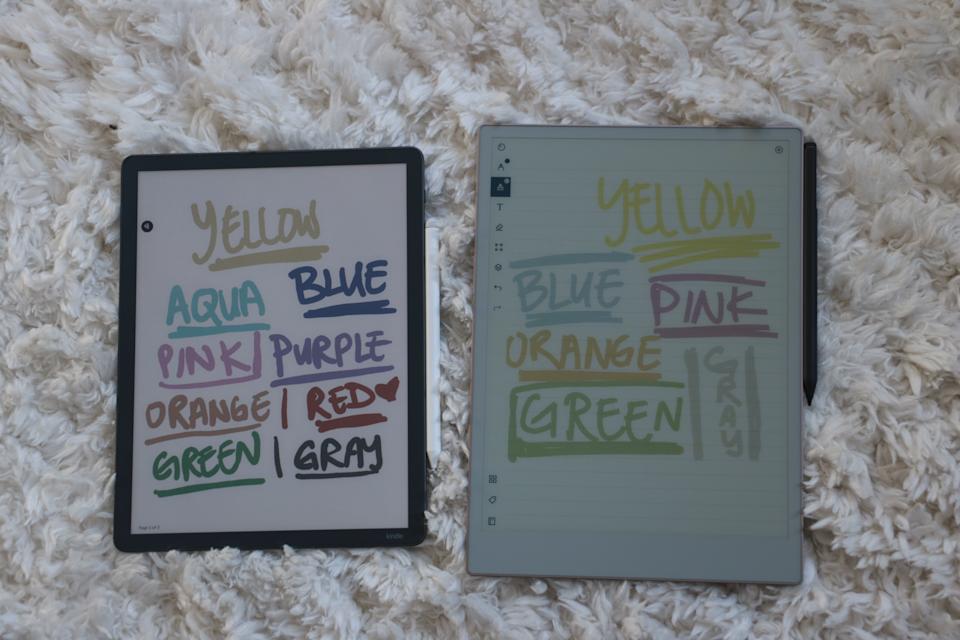 YELLOW
AQUA BLUE
PINK PURPLE
ORANGE RED
GREEN GRAY
Page 2 of 2
kindle
T
YELLOW
BLUE PINK
ORANGE
GREEN
GRAY